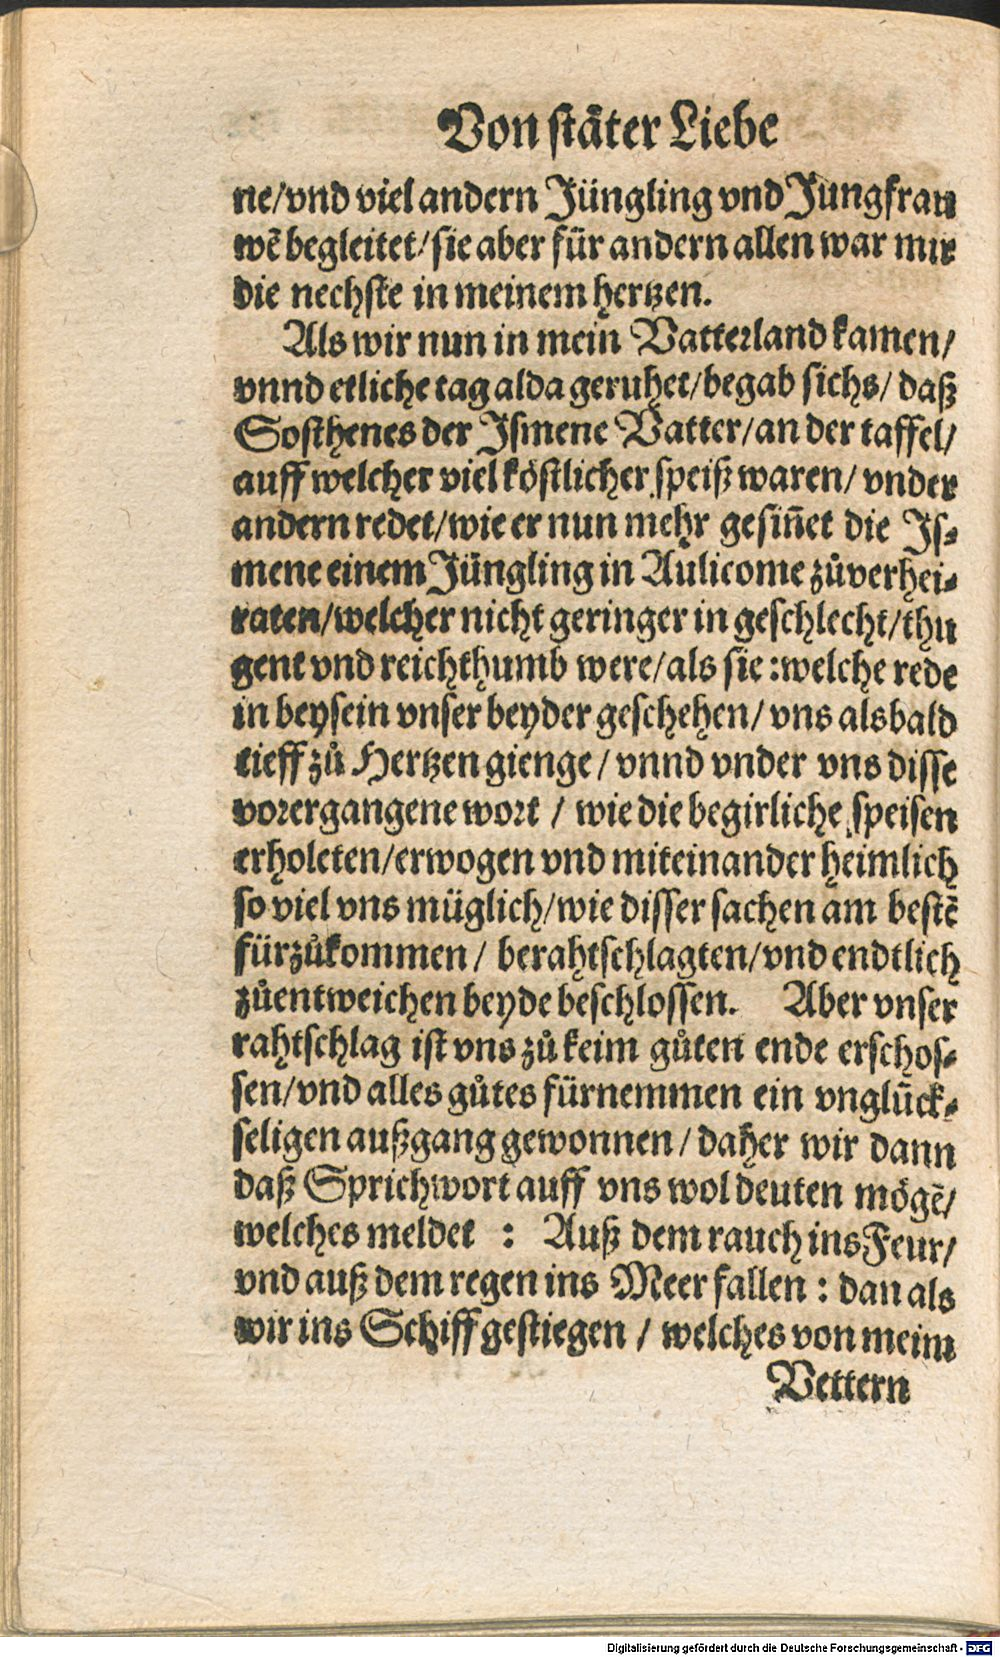 Von stäter Liebe
ne/vnd viel andern Jüngling vnd Jungfrau
wē begleitet/sie aber für andern allen war mir
die nechste in meinem hertzen.
Als wir nun in mein Vatterland kamen/
vnnd etliche tag alda geruhet/begab sichs/ daß
Sosthenes der Ismene Vatter/an der taffel/
auff welcher viel köstlicher speiß waren/ vnder
andern redet/wie er nun mehr gesiñet die Is-
mene einem Jüngling in Aulicome zůverhei-
raten/welcher nicht geringer in geschlecht/thu
gent vnd reichthumb were/als sie:welche rede
in beysein vnser beyder geschehen/ vns alsbald
tieff zů Hertzen gienge/ vnnd vnder vns disse
vorergangene wort / wie die begirliche speisen
erholeten/erwogen vnd miteinander heimlich
so viel vns müglich/wie disser sachen am bestē
fürzůkommen/ berahtschlagten/vnd endtlich
zůentweichen beyde beschlossen. Aber vnser
rahtschlag ist vns zů keim gůten ende erschos-
sen/vnd alles gůtes fürnemmen ein vnglück-
seligen außgang gewonnen/ daher wir dann
daß Sprichwort auff vns wol deuten mögē/
welches meldet : Auß dem rauch ins Feur/
vnd auß dem regen ins Meer fallen : dan als
wir ins Schiff gestiegen / welches von meim
Vettern
Digitalisierung gefördert durch die Deutsche Forschungsgemeinschaft - DFG